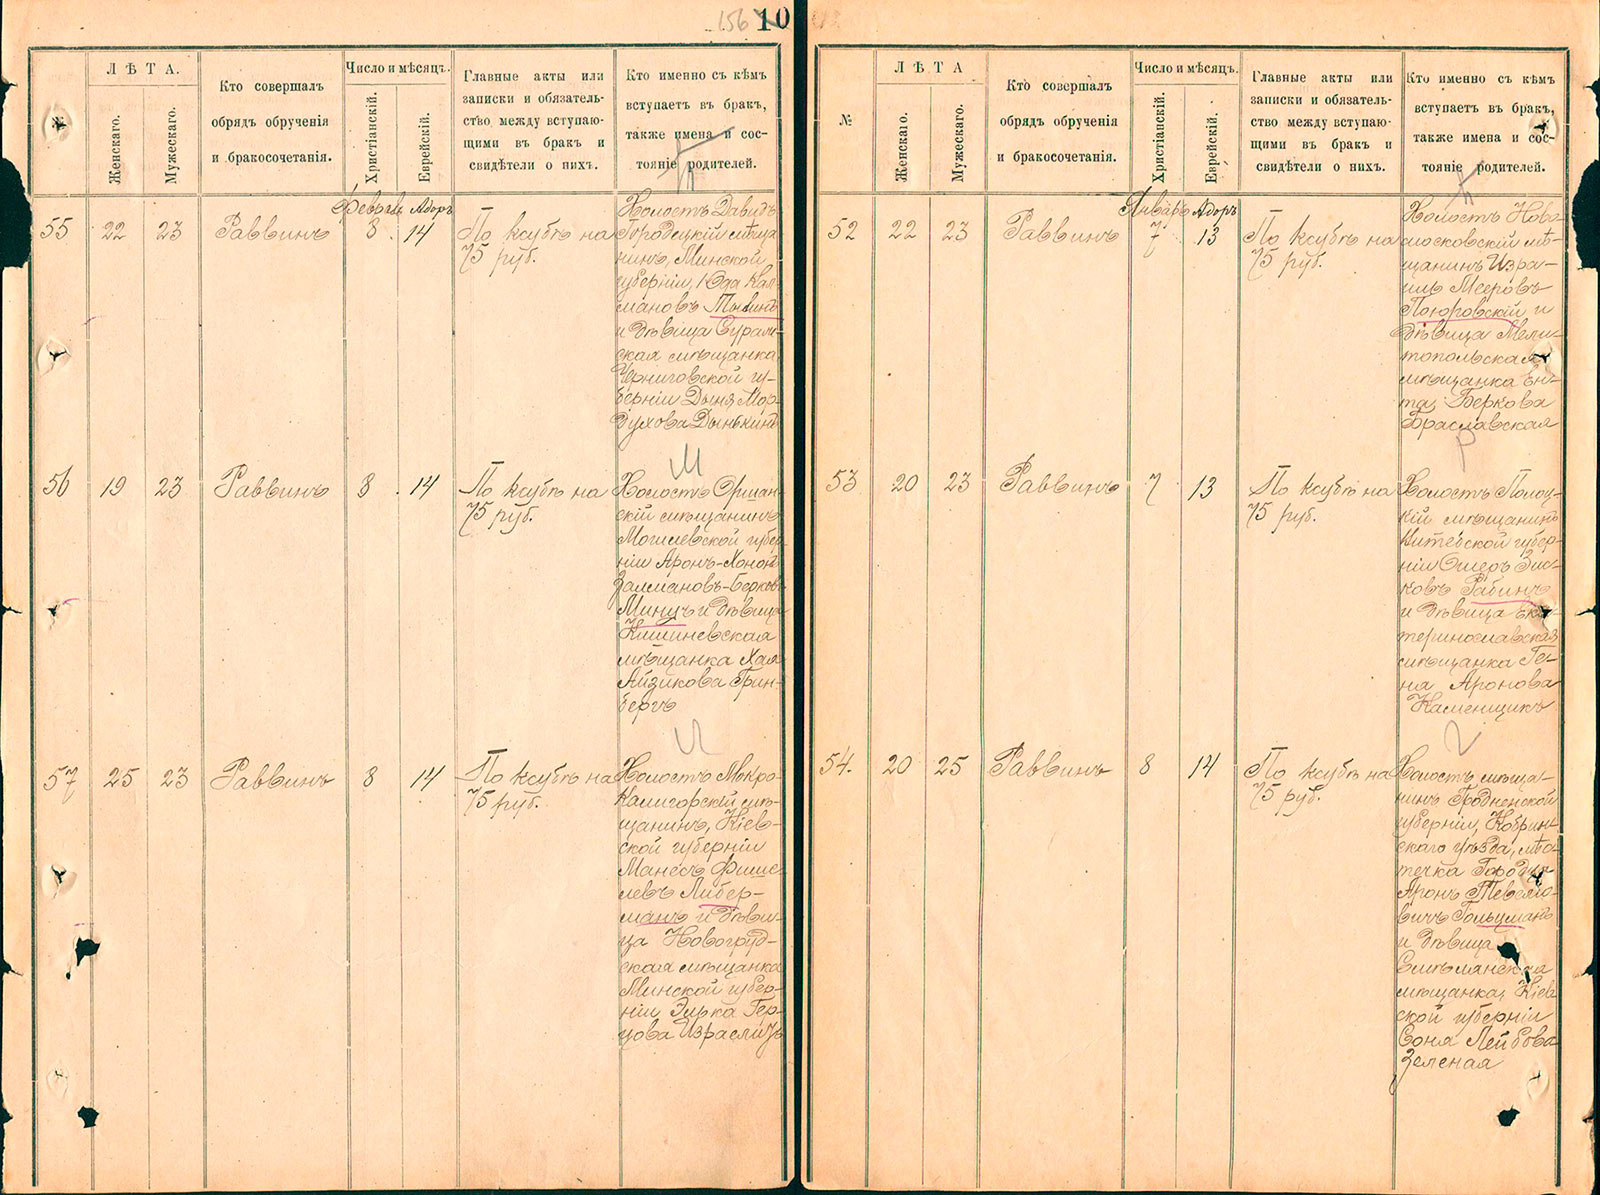 156 10
№
ЛѢТА.
Женскаго.
Мужескаго.
Кто совершалъ
обрядъ обрученія
и бракосочетанія.
Число и мѣсяцъ.
Христіанскій.
Еврейскій.
Главные акты или
записки и обязатель-
ство между вступаю-
щими въ бракъ и
свидѣтели о нихъ.
Кто именно съ кѣмъ
вступаетъ въ бракъ,
также имена и сос-
тояніе родителей.
Февраль Адоръ
55 22 23 Раввинъ 8 14 По ксубѣ на
75 руб.
Холостъ Давидъ-
Городецкій мѣща-
нинъ, Минской
губерніи, Юда Кал-
мановъ Тывинъ
и дѣвица Суражс-
кая мѣщанка
Черниговской гу-
берніи Дыня Мор-
духова Дынькинъ
Ш
56 19 23 Раввинъ 8 14 По ксубѣ на
75 руб.
Холостъ Оршан-
скій мѣщанинъ
Могилевской губер-
ніи Аронъ-Хононъ
Залмановъ-Берковъ
Минцъ и дѣвица
Кишиневская
мѣщанка Хая
Айзикова Грин-
бергъ
57 25 23 Раввинъ 8 14 По ксубѣ на
75 руб.
Холостъ Мокро-
Калигорскій мѣ-
щанинъ, Кіев-
ской губерніи
Манесъ Фише-
левъ Либер-
манъ и дѣви-
ца Новогруд-
ская мѣщанка
Минской губер-
ніи Элька Гер-
цова Израелитъ
№
ЛѢТА
Женскаго.
Мужескаго.
Кто совершалъ
обрядъ обрученія
и бракосочетанія.
Число и мѣсяцъ.
Христіанскій.
Еврейскій.
Главные акты или
записки и обязатель-
ство между вступаю-
щими въ бракъ и
свидѣтели о нихъ.
Кто именно съ кѣмъ
вступаетъ въ бракъ,
также имена и сос-
тояніе родителей.
Январь Адоръ
52 22 23 Раввинъ 7 13 По ксубѣ на
75 руб.
Холостъ Ново-
московскій мѣ-
щанинъ Изра-
иль Мееровъ
Погоровскій и
дѣвица Мели-
топольская
мѣщанка Ен-
та Беркова
Браславская
Р
53 20 23 Раввинъ 7 13 По ксубѣ на
75 руб.
Холостъ Полоц-
кій мѣщанинъ
Витебской губер-
ніи Ошеръ Зис-
ковъ Рабинъ
и дѣвица Ека-
теринославская
мѣщанка Ге-
ня Аронова
Каменщикъ
54. 20 25 Раввинъ 8 14 По ксубѣ на
75 руб.
Холостъ мѣща-
нинъ Гродненской
губерніи, Кобрин-
скаго уѣзда, мѣс-
течка Городца
Аронъ Тевело-
вичъ Гольцманъ
и дѣвица
Смѣлянская
мѣщанка, Кіев-
ской губерніи
Соня Лейбова
Зеленая